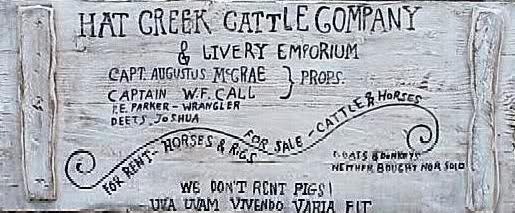 HAT CREEK CATTLE COMPANY
& LIVERY EMPORIUM
CAPT. AUGUSTUS McCRAE
CAPTAIN W.F. CALL
PROPS.
P.E. PARKER - WRANGLER
DEETS, JOSHUA
FOR RENT - HORSES & RIGS
FOR SALE - CATTLE & HORSES
GOATS & DONKEYS
NEITHER BOUGHT NOR SOLD
WE DON'T RENT PIGS!
UVA UVAM VIVENDO VARIA FIT